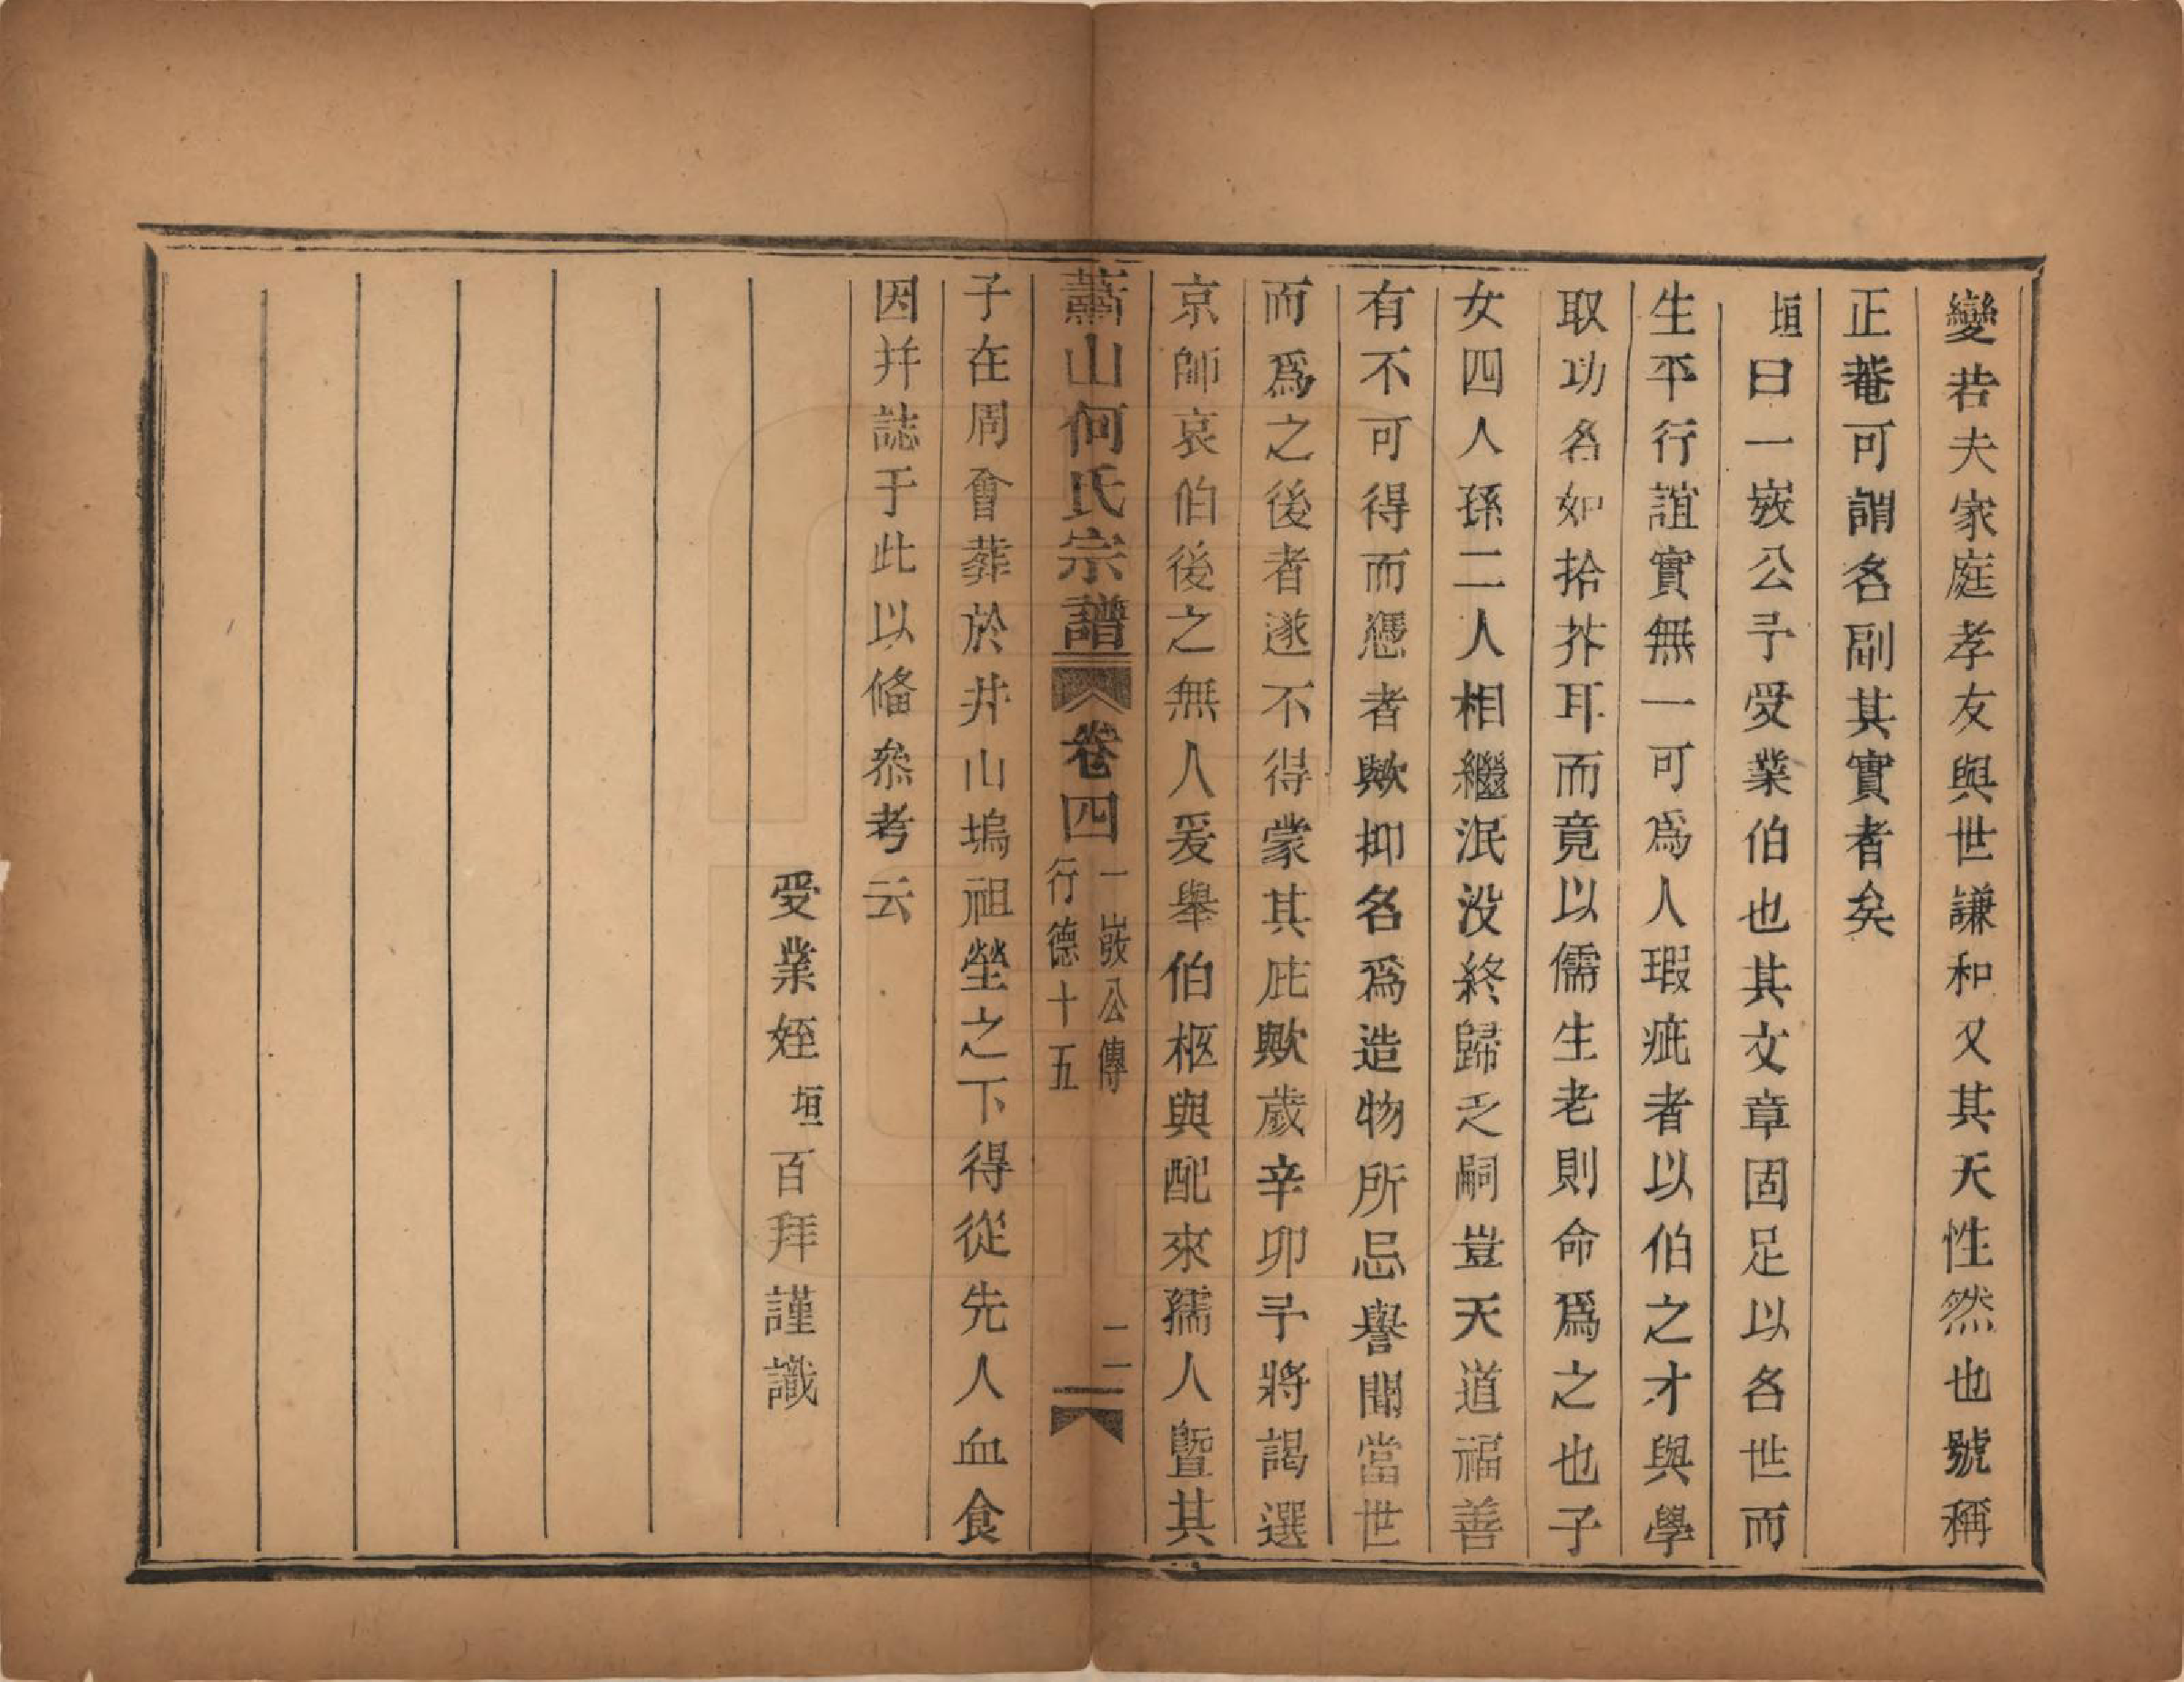 變若夫家庭孝友與世謙和又其天性然也號稱
正菴可謂名副其實者矣
垣曰一嶔公予受業伯也其文章固足以名世而
生平行誼實無一可為人瑕疵者以伯之才與學
取功名如拾芥耳而竟以儒生老則命為之也子
女四人孫二人相繼泯没終歸乏嗣豈天道福善
有不可得而憑者歟抑名為造物所忌譽聞當世
而為之後者遂不得蒙其庇歟歲辛卯予將謁選
京師哀伯後之無人爰舉伯柩與配來孺人暨其
蕭山何氏宗譜
卷四
一嶔公傳
行德十五
二一
子在周會葬於井山塢祖塋之下得從先人血食
因并誌于此以俻叅考云
受業姪垣百拜謹識